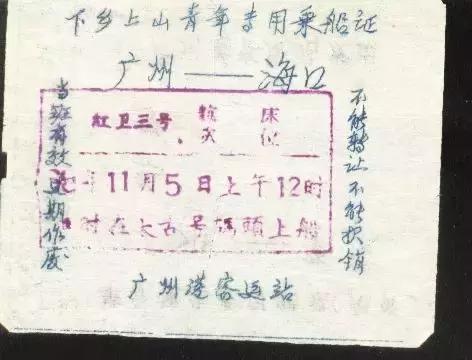 下乡上山青年专用乘船证
广州——海口
当班有效过期作废
红卫三号 舱次 床位
年11月5日上午12时
时在太古号码頭上船
不能转让不能报销
广州港客运站